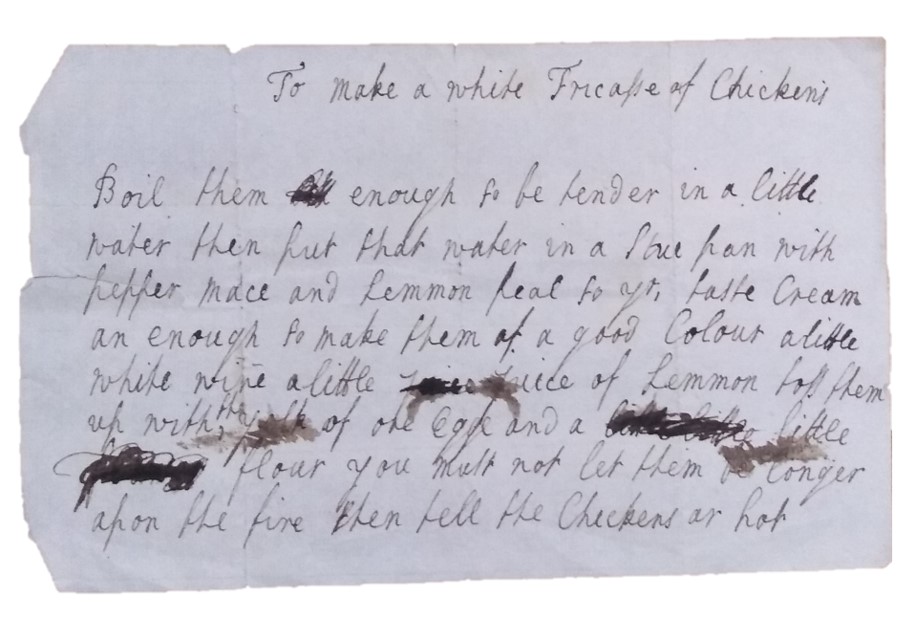 To make a white Fricasse of Chickens
Boil them enough to be tender in a little
water then put that water in a Stue pan with
pepper mace and Lemmon peal to yr. taste Cream
an enough to make them of a good Colour alittle
white wine alittle Juice of Lemmon toss them
up with the yolk of one Egge and a little
flour you must not let them be longer
apon the fire then tell the Chickens ar hot